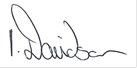 I. Davidson